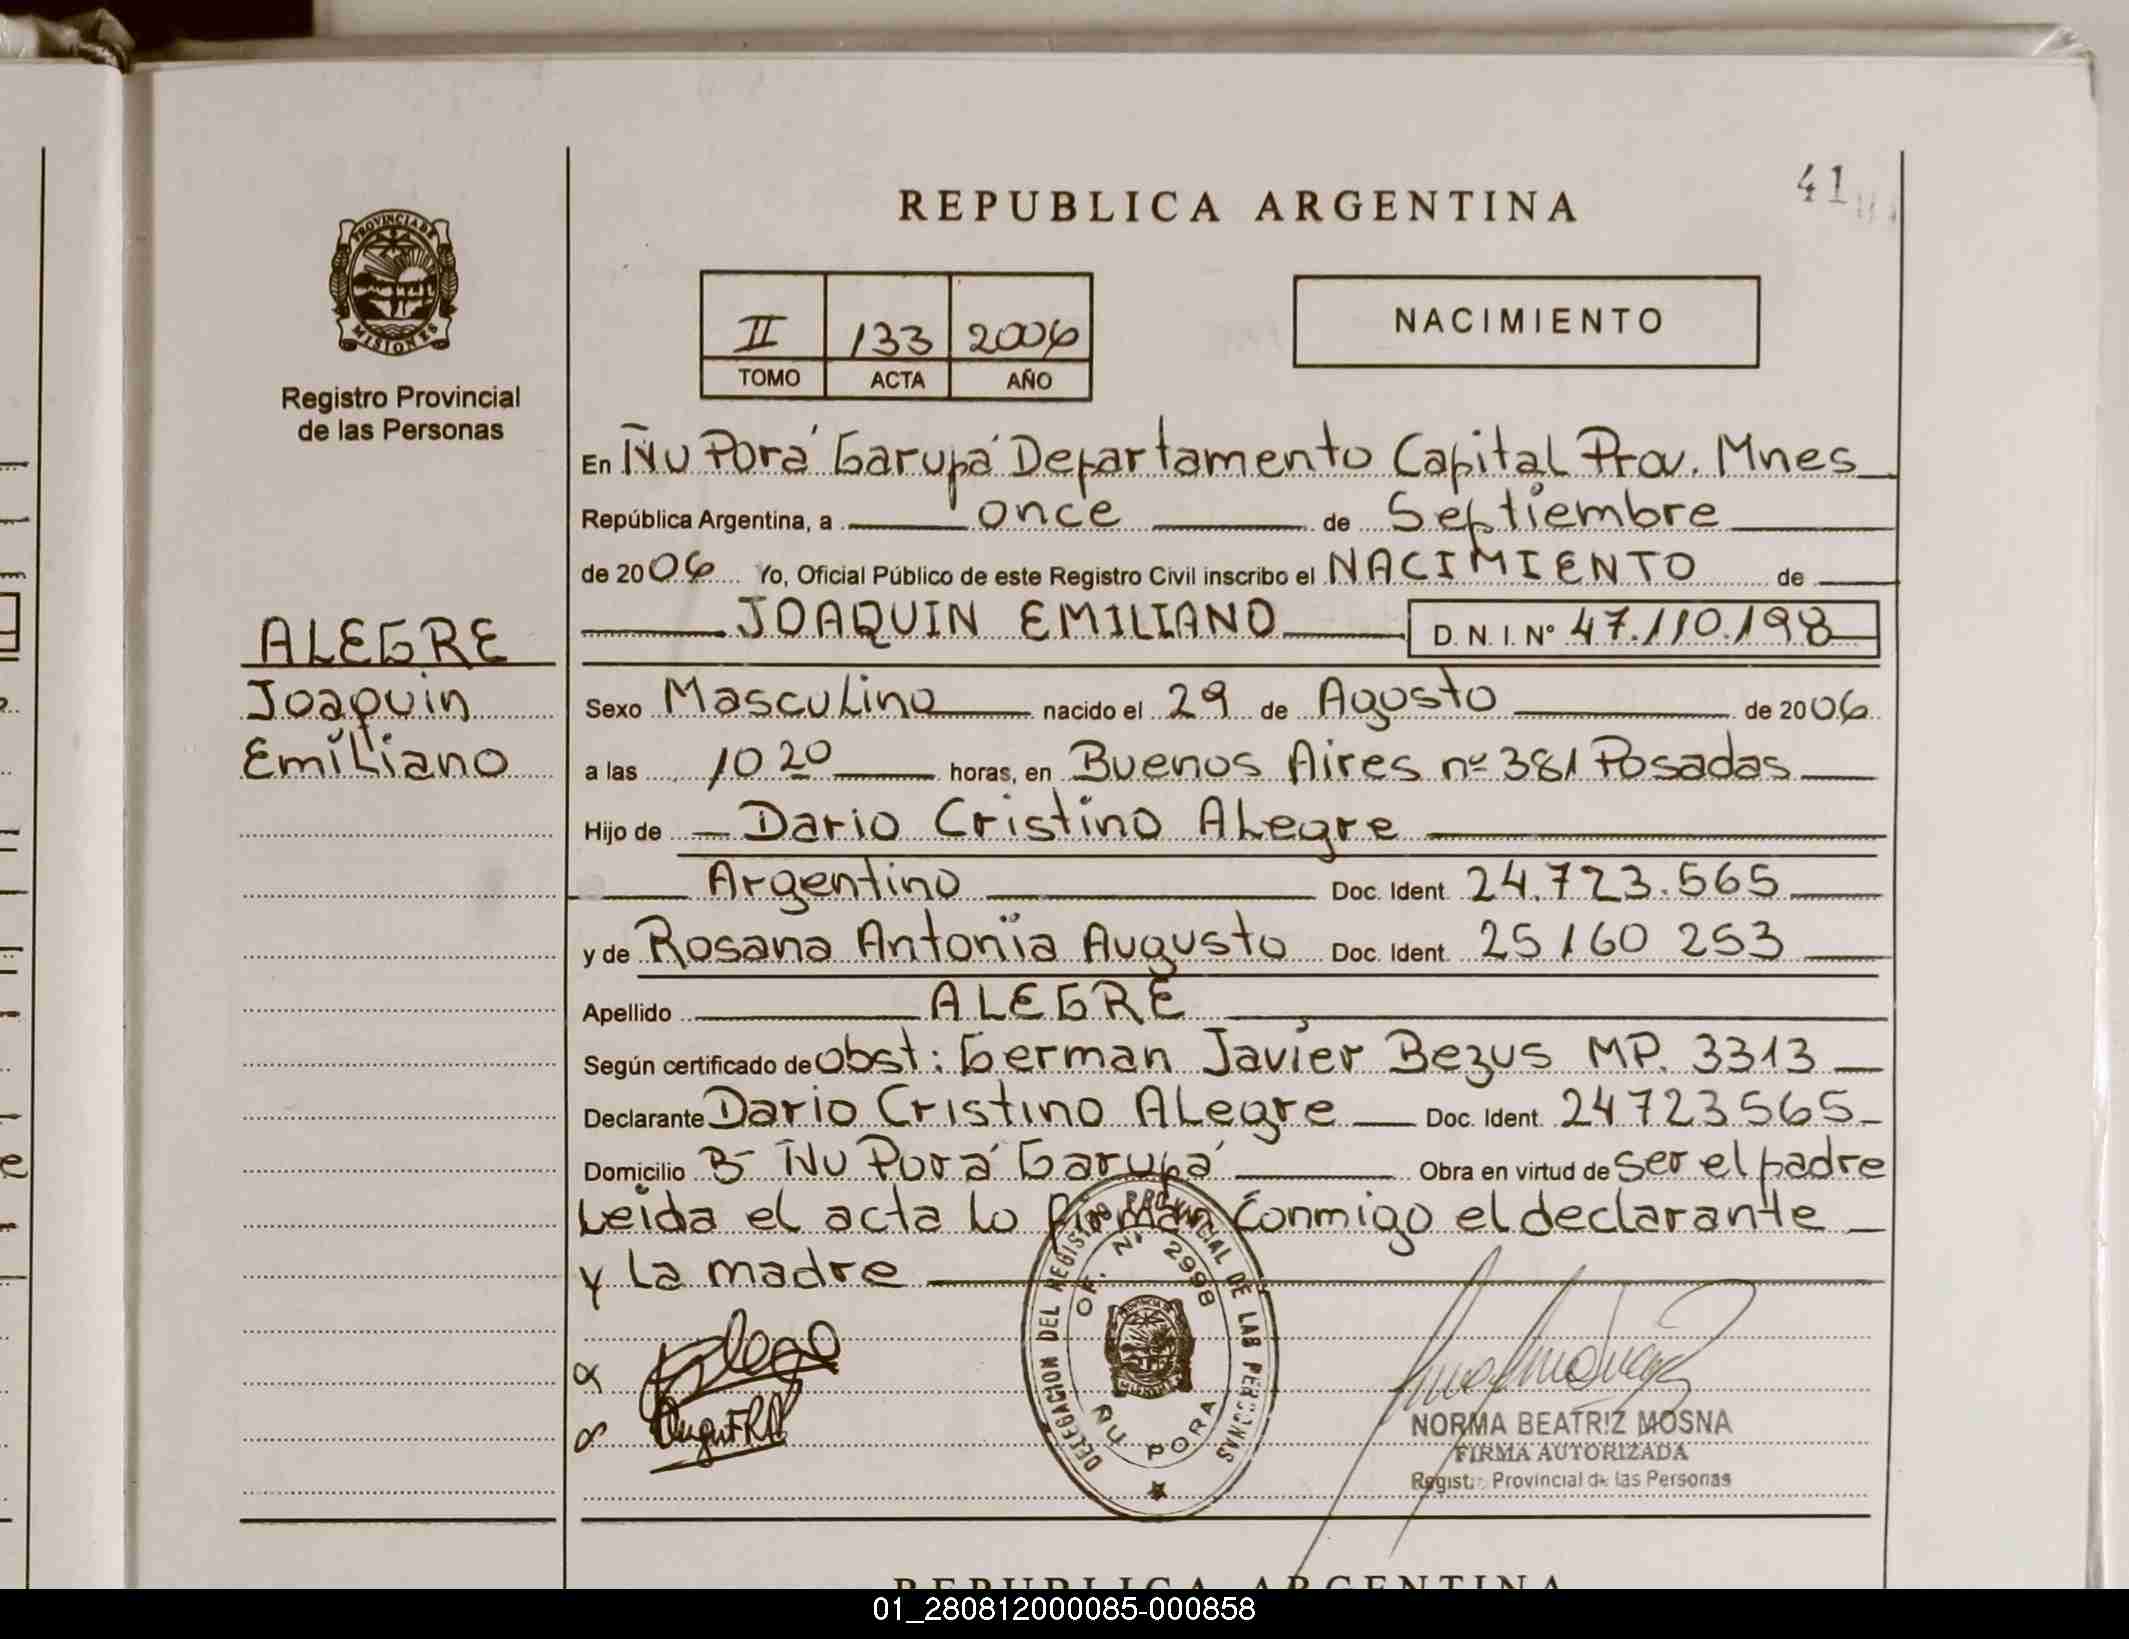 REPUBLICA ARGENTINA
41
PROVINCIA DE
MISIONES
Registro Provincial
de las Personas
II 133 2006
TOMO ACTA AÑO
NACIMIENTO
En Ñu Porá Garupá Departamento Capital Prov. Mnes
República Argentina, a once de Septiembre
de 2006 Yo, Oficial Público de este Registro Civil inscribo el NACIMIENTO de
JOAQUIN EMILIANO D. N. I. Nº 47.110.198
ALEGRE
Joaquin
Emiliano
Sexo Masculino nacido el 29 de Agosto de 2006
a las 10 20 horas, en Buenos Aires nº 381 Posadas
Hijo de Dario Cristino Alegre
Argentino Doc. Ident. 24.723.565
y de Rosana Antonia Augusto Doc. Ident. 25 160 253
Apellido ALEGRE
Según certificado de obst: German Javier Bezus MP. 3313
Declarante Dario Cristino Alegre Doc. Ident. 24723565
Domicilio Bº Ñu Porá Garupá Obra en virtud de ser el padre
Leida el acta lo firman conmigo el declarante
y la madre
DELEGACION DEL REGISTRO PROVINCIAL DE LAS PERSONAS
OF. Nº 2998
ÑU PORA
NORMA BEATRIZ MOSNA
FIRMA AUTORIZADA
Registro Provincial de las Personas
REPUBLICA ARGENTINA
01_280812000085-000858